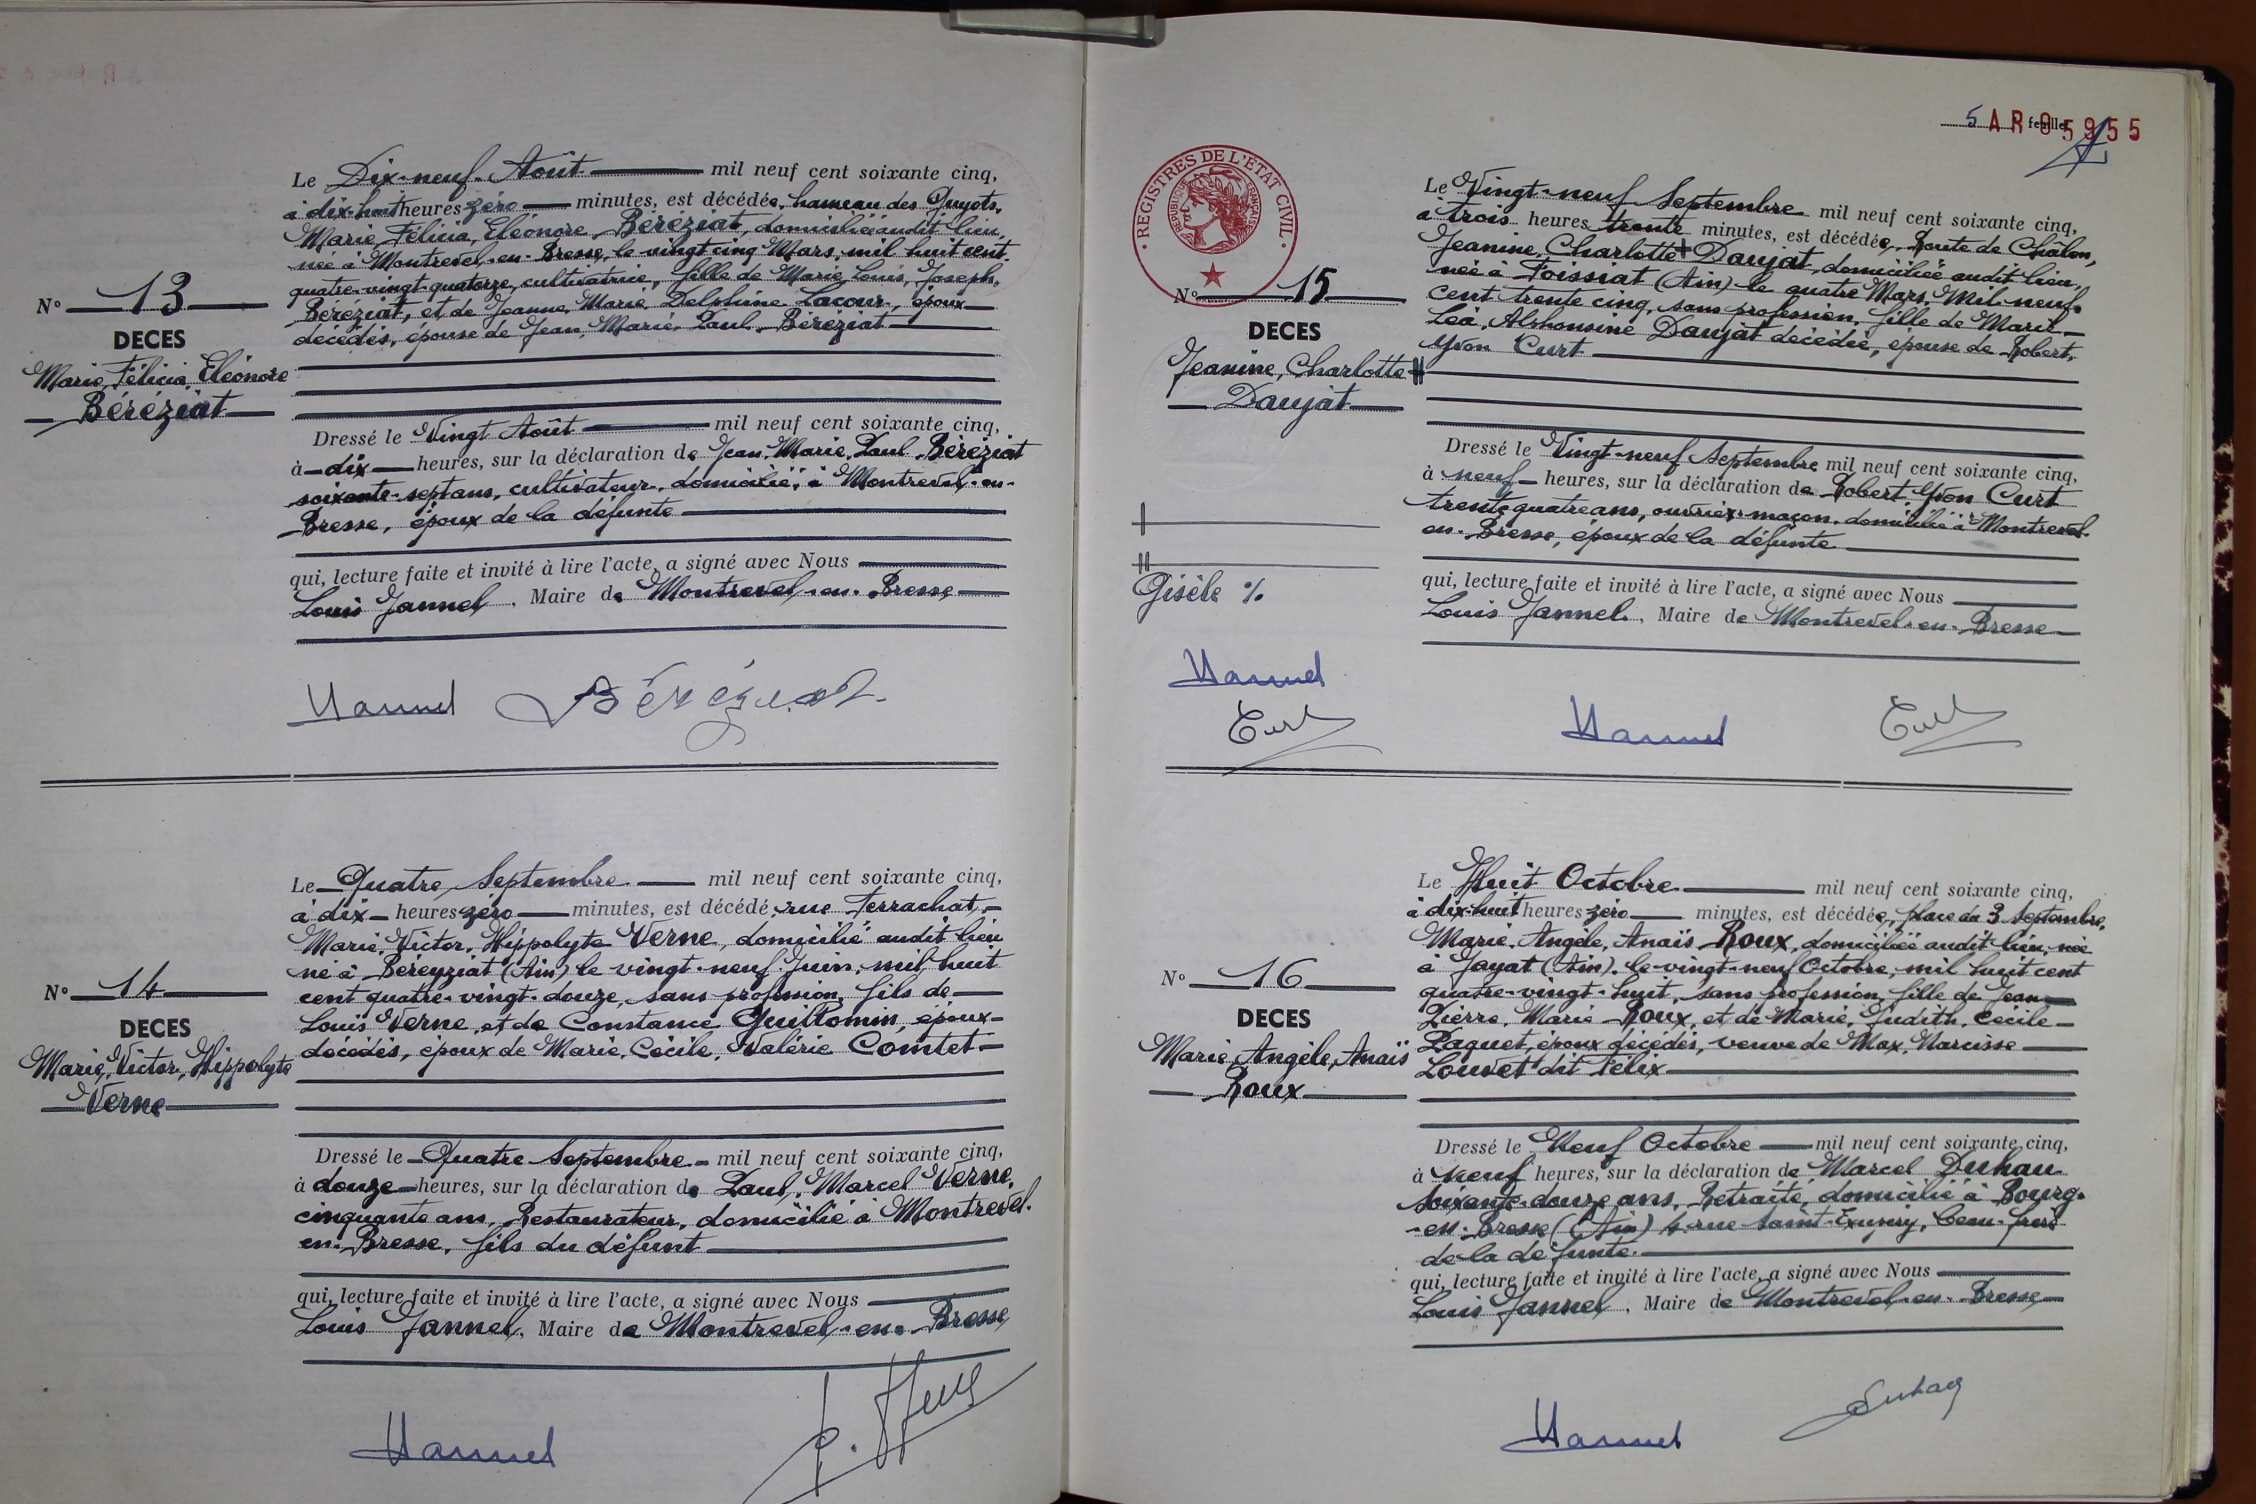 Le Dix-neuf Août mil neuf cent soixante cinq,
à dix-huit heures zéro minutes, est décédée, hameau des Guyots,
Marie, Félicia, Eléonore Béréziat, domiciliée audit lieu,
née à Montrevel-en-Bresse, le vingt cinq Mars, mil huit cent
quatre-vingt-quatorze, cultivatrice, fille de Marie, Louis, Joseph,
Béréziat, et de Jeanne, Marie, Delphine Lacour, époux
décédés, épouse de Jean, Marie, Paul Béréziat
N° 13
DECES
Marie, Félicia, Eléonore
Béréziat
Dressé le Vingt Août mil neuf cent soixante cinq,
à dix heures, sur la déclaration de Jean, Marie, Paul Béréziat
soixante-sept ans, cultivateur, domicilié à Montrevel-en-
Bresse, époux de la défunte
qui, lecture faite et invité à lire l'acte, a signé avec Nous
Louis Jannel, Maire de Montrevel-en-Bresse
Jannel Béréziat
Le Quatre Septembre mil neuf cent soixante cinq,
à dix heures zéro minutes, est décédé, rue Ferrachat,
Marie, Victor, Hippolyte Verne, domicilié audit lieu
né à Béreyziat (Ain) le vingt-neuf Juin, mil huit
cent quatre-vingt-douze, sans profession, fils de
Louis Verne, et de Constance Guillomin, époux
décédés, époux de Marie, Cécile, Valérie Comtet
N° 14
DECES
Marie, Victor, Hippolyte
Verne
Dressé le Quatre Septembre mil neuf cent soixante cinq,
à douze heures, sur la déclaration de Paul, Marcel Verne,
cinquante ans, Restaurateur, domicilié à Montrevel-
en-Bresse, fils du défunt
qui, lecture faite et invité à lire l'acte, a signé avec Nous
Louis Jannel, Maire de Montrevel-en-Bresse
Jannel
5 feuillet
AR 05955
REGISTRES DE L'ÉTAT CIVIL
RÉPUBLIQUE FRANÇAISE
Le Vingt-neuf Septembre mil neuf cent soixante cinq,
à trois heures trente minutes, est décédée, Route de Châlon,
Jeanine, Charlotte + Daujat, domiciliée audit lieu,
née à Foissiat (Ain) le quatre Mars, Mil neuf
cent trente cinq, sans profession, fille de Marie
Léa, Alphonsine Daujat décédée, épouse de Robert,
Yvon Curt
N° 15
DECES
Jeanine, Charlotte
Daujat
Dressé le Vingt-neuf Septembre mil neuf cent soixante cinq,
à neuf heures, sur la déclaration de Robert, Yvon Curt
trente quatre ans, ouvrier-maçon, domicilié à Montrevel-
en-Bresse, époux de la défunte
qui, lecture faite et invité à lire l'acte, a signé avec Nous
Louis Jannel, Maire de Montrevel-en-Bresse
Gisèle %
Jannel
Curt
Jannel Curt
Le Huit Octobre mil neuf cent soixante cinq,
à dix-huit heures zéro minutes, est décédée, place du 3 Septembre,
Marie, Angèle, Anaïs Roux, domiciliée audit lieu, née
à Jayat (Ain), le vingt-neuf Octobre, mil huit cent
quatre-vingt-huit, sans profession, fille de Jean
Pierre, Marie Roux, et de Marie, Judith, Cécile
Paquet, époux décédés, veuve de Max, Narcisse
Louvet dit Félix
N° 16
DECES
Marie, Angèle, Anaïs
Roux
Dressé le Neuf Octobre mil neuf cent soixante cinq,
à neuf heures, sur la déclaration de Marcel Duhau
soixante-douze ans, Retraité, domicilié à Bourg-
-en-Bresse (Ain) rue Saint-Exupéry, beau-frère
de la défunte.
qui, lecture faite et invité à lire l'acte, a signé avec Nous
Louis Jannel, Maire de Montrevel-en-Bresse
Jannel Duhau